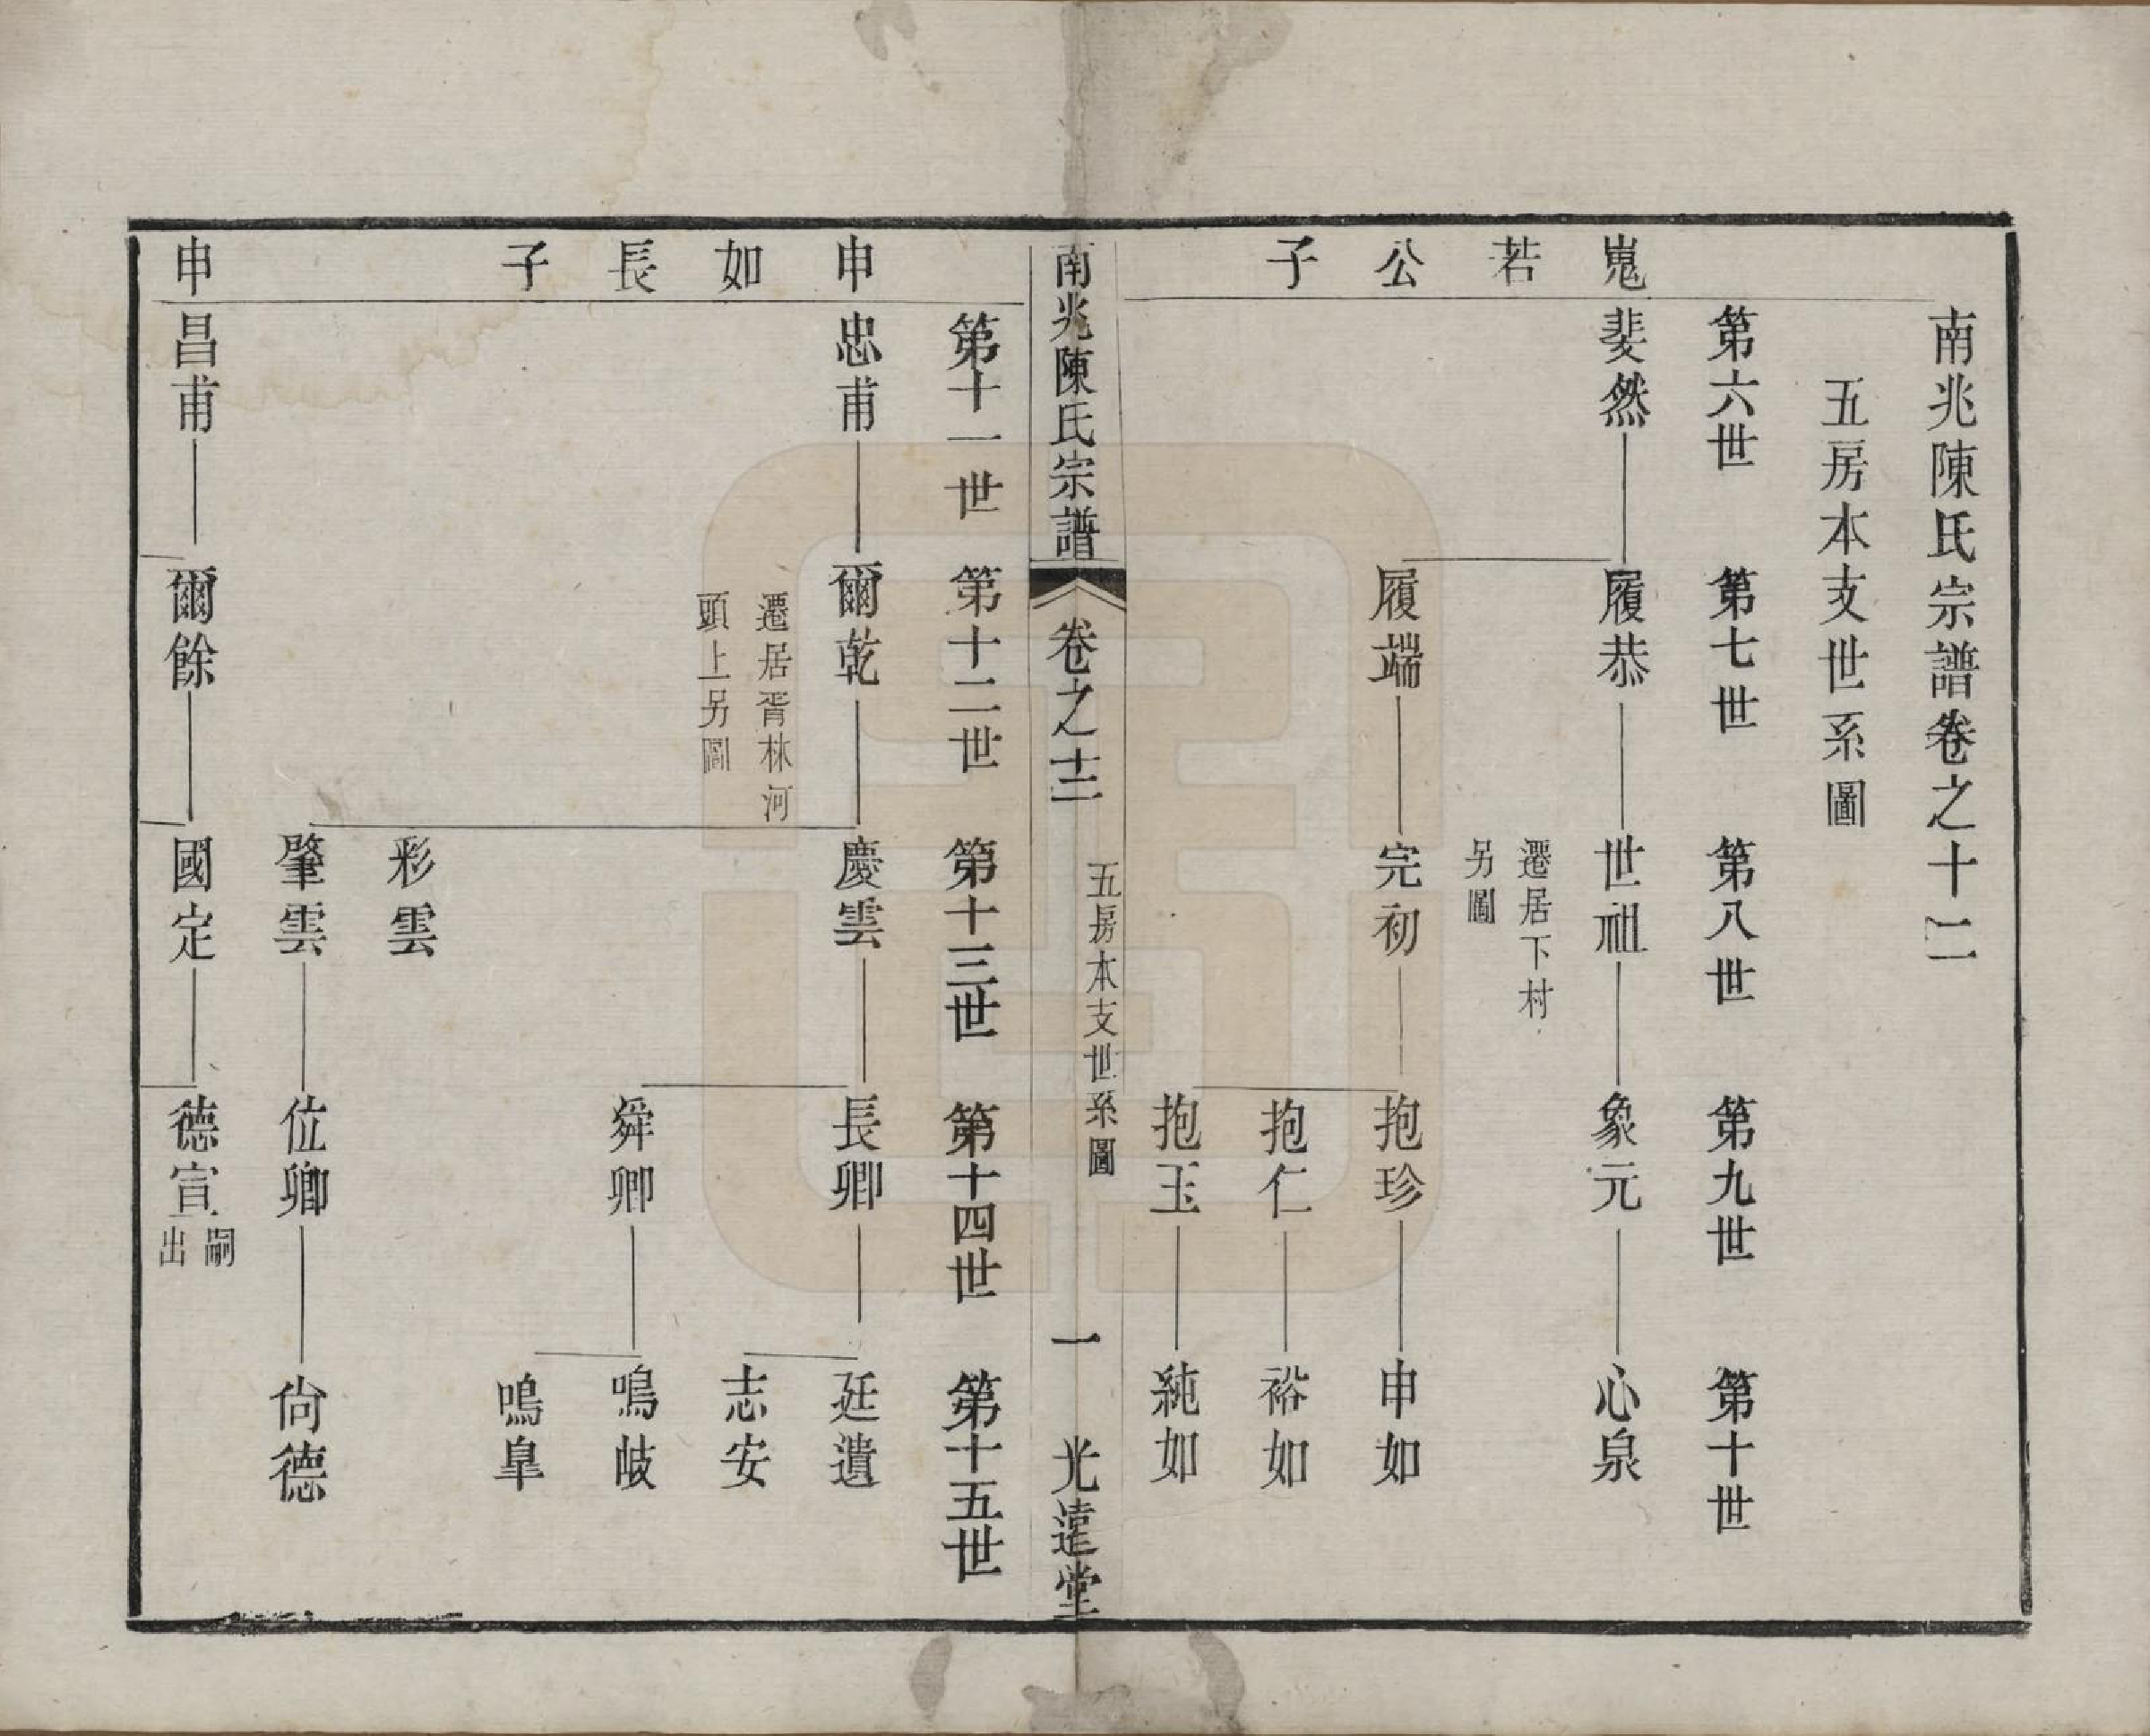 南兆陳氏宗譜卷之十二
五房本支世系圖
第六世 第七世 第八世 第九世 第十世
嵬 若 公 子
斐然 履恭 世祖 象元 心泉
遷居下村
另圖
履端 完初 抱珍 申如
抱仁 裕如
抱玉 純如
南兆陳氏宗譜 卷之十二 五房本支世系圖 一 光遠堂
第十一世 第十二世 第十三世 第十四世 第十五世
申 如 長 子
忠甫 爾乾 慶雲 長卿 廷遺
遷居胥林河
頭上另圖
志安
舜卿 鳴岐
鳴皐
彩雲
肇雲 位卿 尙德
申
昌甫 爾餘 國定 德宣 嗣
出